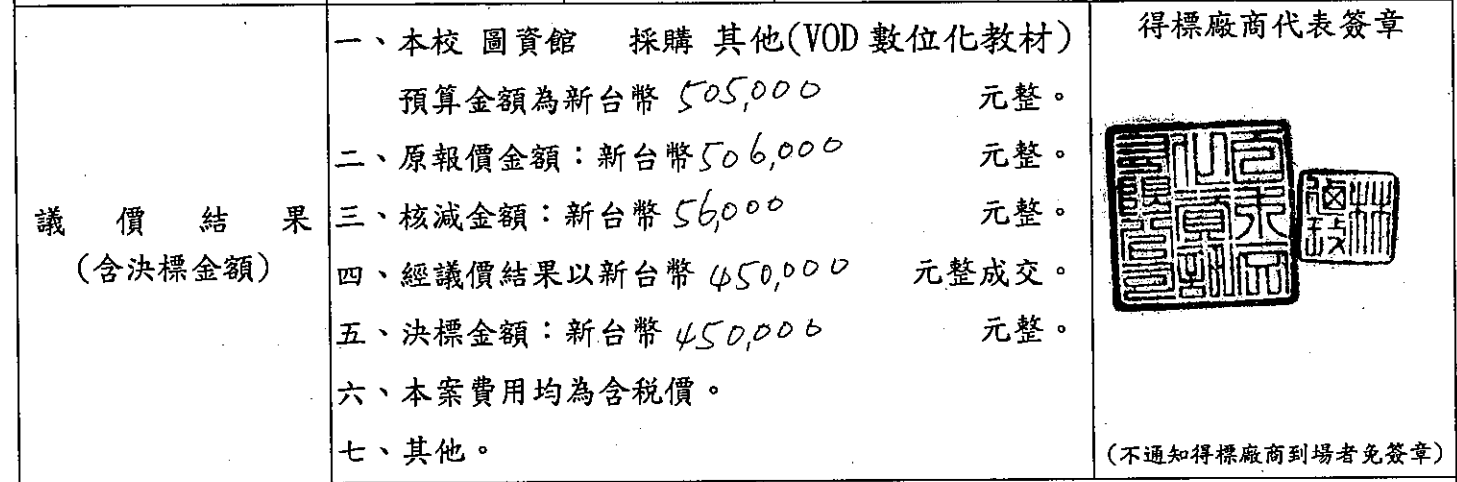 議價結果
(含決標金額)
一、本校 圖資館 採購 其他(VOD數位化教材)
預算金額為新台幣 505,000 元整。
二、原報價金額：新台幣506,000 元整。
三、核減金額：新台幣 56,000 元整。
四、經議價結果以新台幣 450,000 元整成交。
五、決標金額：新台幣 450,000 元整。
六、本案費用均為含稅價。
七、其他。
得標廠商代表簽章
(不通知得標廠商到場者免簽章)